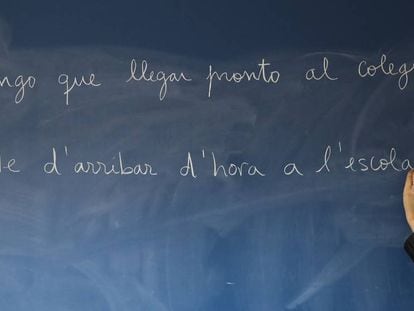 ngo que llegar pronto al coleg
e d'arribar d'hora a l'escola